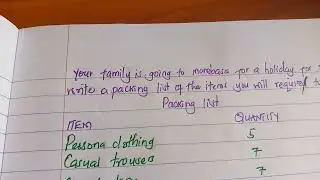 Your family is going to mombasa for a holiday for
write a packing list of the items you will required
Packing list
ITEM QUANTITY
Persona clothing 5
Casual trouses 7
7